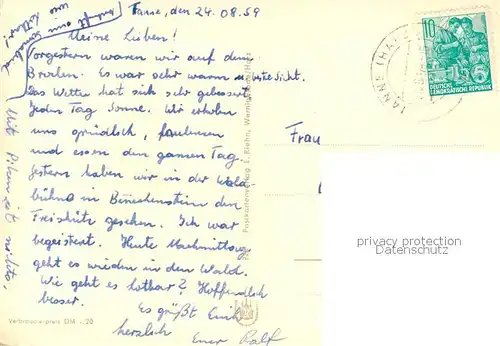 Tanne, den 24.08.59
Meine Lieben!
Vorgestern waren wir auf dem
Brocken. Es war sehr warm u. beste Sicht.
Das Wetter hat sich sehr gebessert
Jeden Tag Sonne. Wir erholen
uns gründlich, faulenzen
und essen den ganzen Tag.
Gestern haben wir in der Wald-
bühne in Benneckenstein den
Freischütz gesehen. Ich war
begeistert. Heute Nachmittag
geht es wieder in den Wald.
Wie geht es Lothar? Hoffendlich
besser.
Es grüßt Euch
herzlich
Euer Ralf
Mit Pilzen ist nichts.
Frau
10
DEUTSCHE
DEMOKRATISCHE REPUBLIK
TANNE (HARZ)
Postkartenverlag E. Riehn, Wernigerode/Harz
Verbraucherpreis DM -,20
privacy protection
Datenschutz